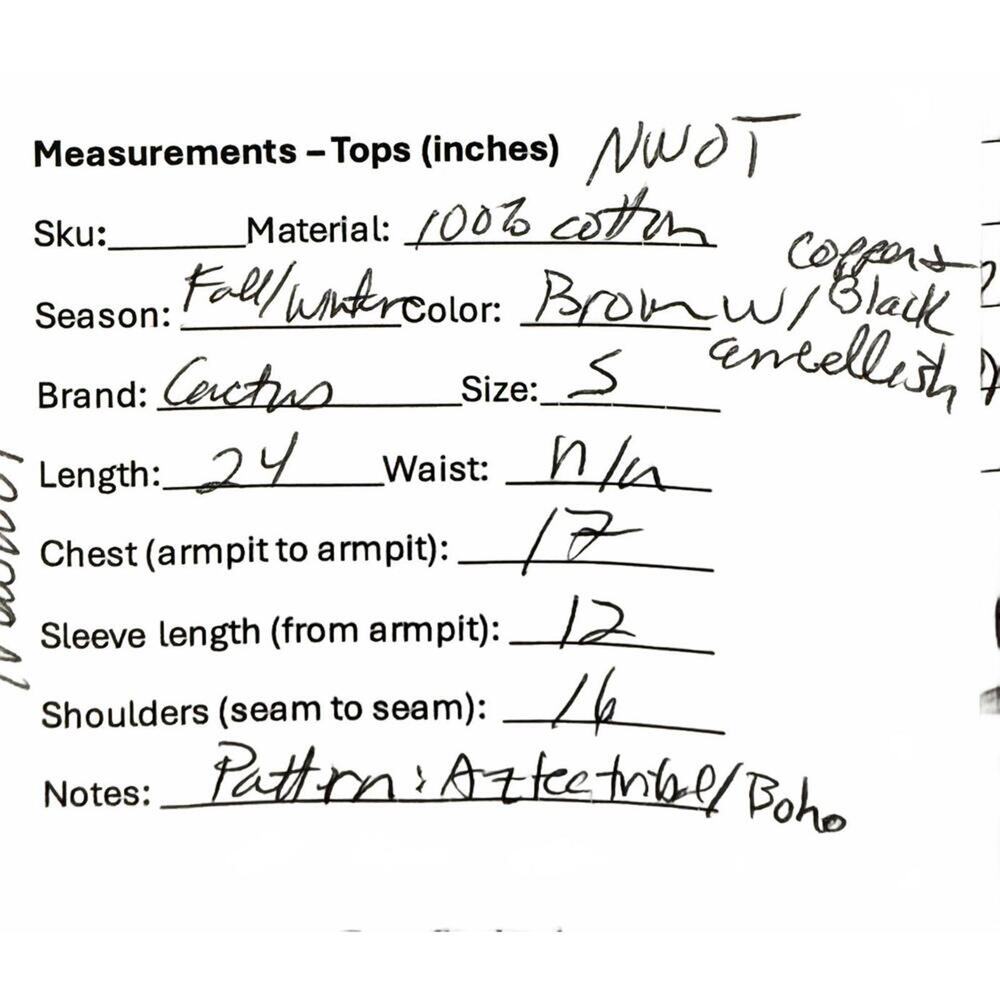 Measurements – Tops (inches) NWOT
Sku:______ Material: 100% cotton
Season: Fall/Winter Color: Brown w/ copper + Black embellish
Brand: Cactus Size: S
Length: 24 Waist: n/a
Chest (armpit to armpit): 17
Sleeve length (from armpit): 12
Shoulders (seam to seam): 16
Notes: Pattern: Aztec tribal/Boho